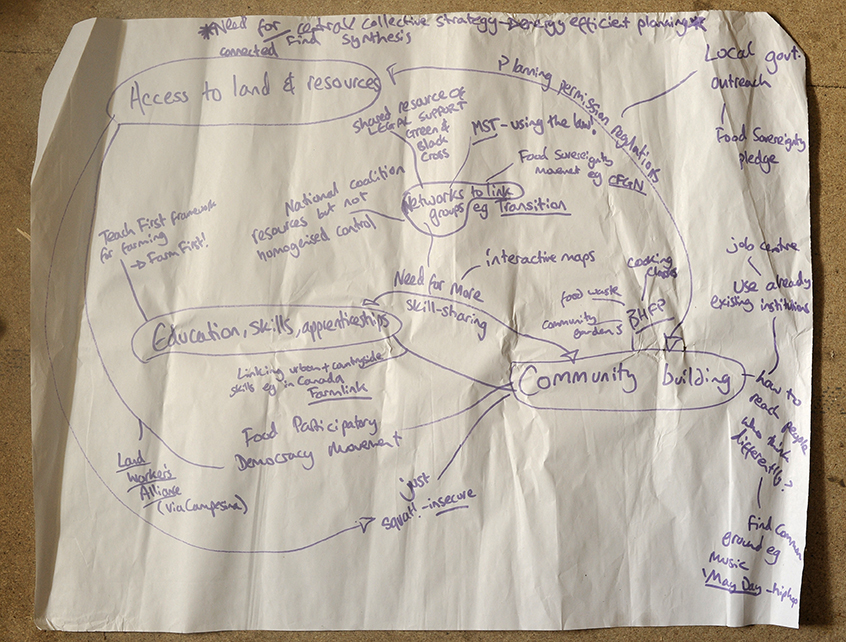 *Need for central collective strategy - energy efficient planning*
connected Find Synthesis
Access to land & resources
Planning permission regulations
Local govt.
outreach
Food Sovereignty
pledge
shared resource of
LEGAL SUPPORT
Green &
Black
Cross
MST - using the law!
Food Sovereignty
movement eg CFGN
Networks to link
groups eg Transition
National coalition
resources but not
homogenised control
Teach First framework
for farming
→ Farm First!
Need for More
skill-sharing
interactive maps
job centre
Use already
existing instituions
cooking
classes
food waste
community
gardens
BHFP
Education, skills, apprenticeships
Community building
Linking urban + countryside
skills eg in Canada
Farmlink
how to
reach people
who think
differently?
Food Participatory
Democracy Movement
Land
Worker's
Alliance
(via Campesina)
just
squat! - insecure
Find Common
ground eg
music
'May Day - hiphop